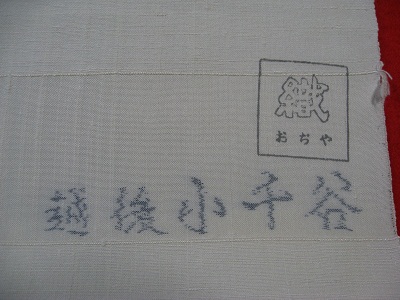 織
おぢや
越後小千谷